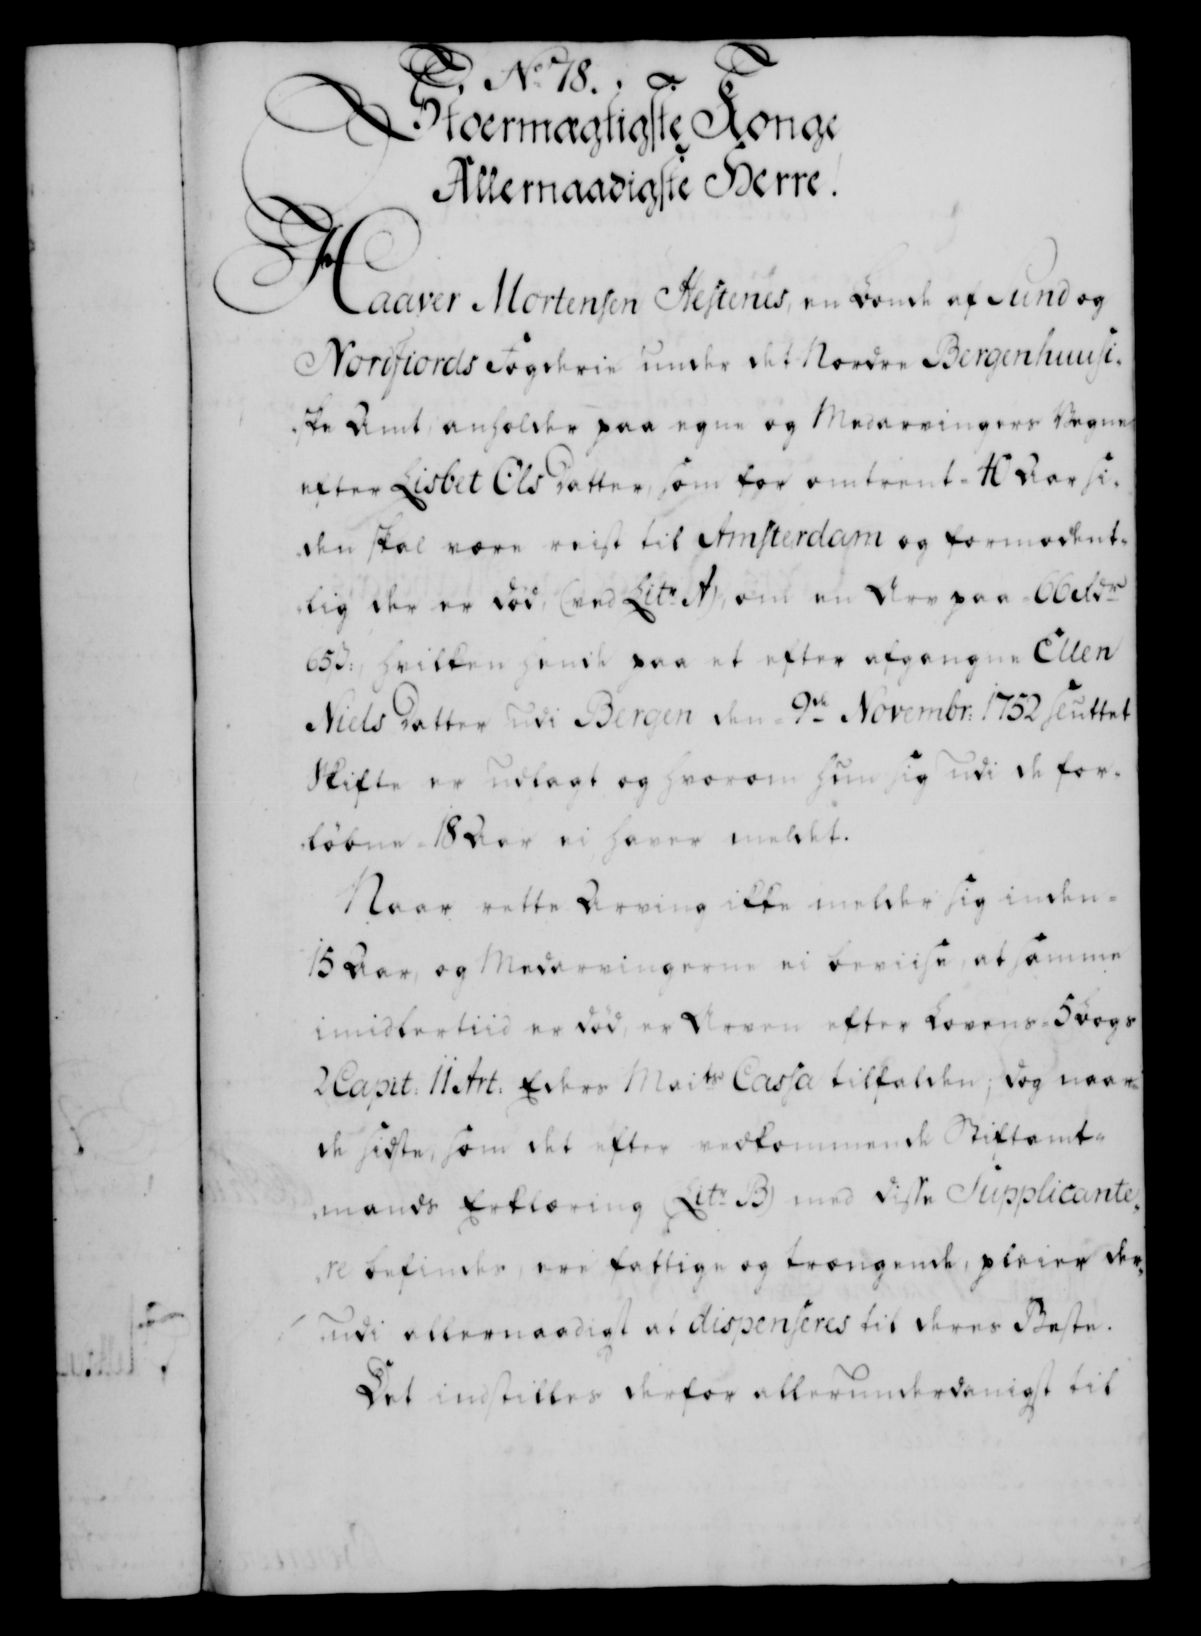 No 78.
Stoermægtigste Konge
Allernaadigste Herre!
Haaver Mortensen Hestenes, en Bonde af Sund og
Nordfiords Fogderie under det Nordre Bergenhuusi-
ske Amt, anholder paa egne og Medarvingers Vegne
efter Lisbet Ols Datter, som for omtrent 40 Aar si-
den skal være reist til Amsterdam og formodent-
lig der er død, (ved Litr A), om en Arv paa 66 Rdr
65 ß:, hvilken hende paa et efter afgangne Ellen
Niels Datter udi Bergen den 9de Novembr: 1752 sluttet
Skifte er udlagt og hvorom hun sig udi de for-
løbne 18 Aar ei haver meldet.
Naar rette Arving ikke melder sig inden
15 Aar, og Medarvingerne ei beviise, at samme
imidlertiid er død, er Arven efter Lovens 5 Bogs
2 Capit: 11 Art: Eders Maits Cassa tilfalden; dog naar
de sidste, som det efter vedkommende Stiftamt-
mands Erklæring (Litr B) med disse Supplicante-
re befindes, ere fattige og trængende, pleier der-
udi allernaadigst at dispenseres til deres Beste.
Det indstilles derfor allerunderdanigst til